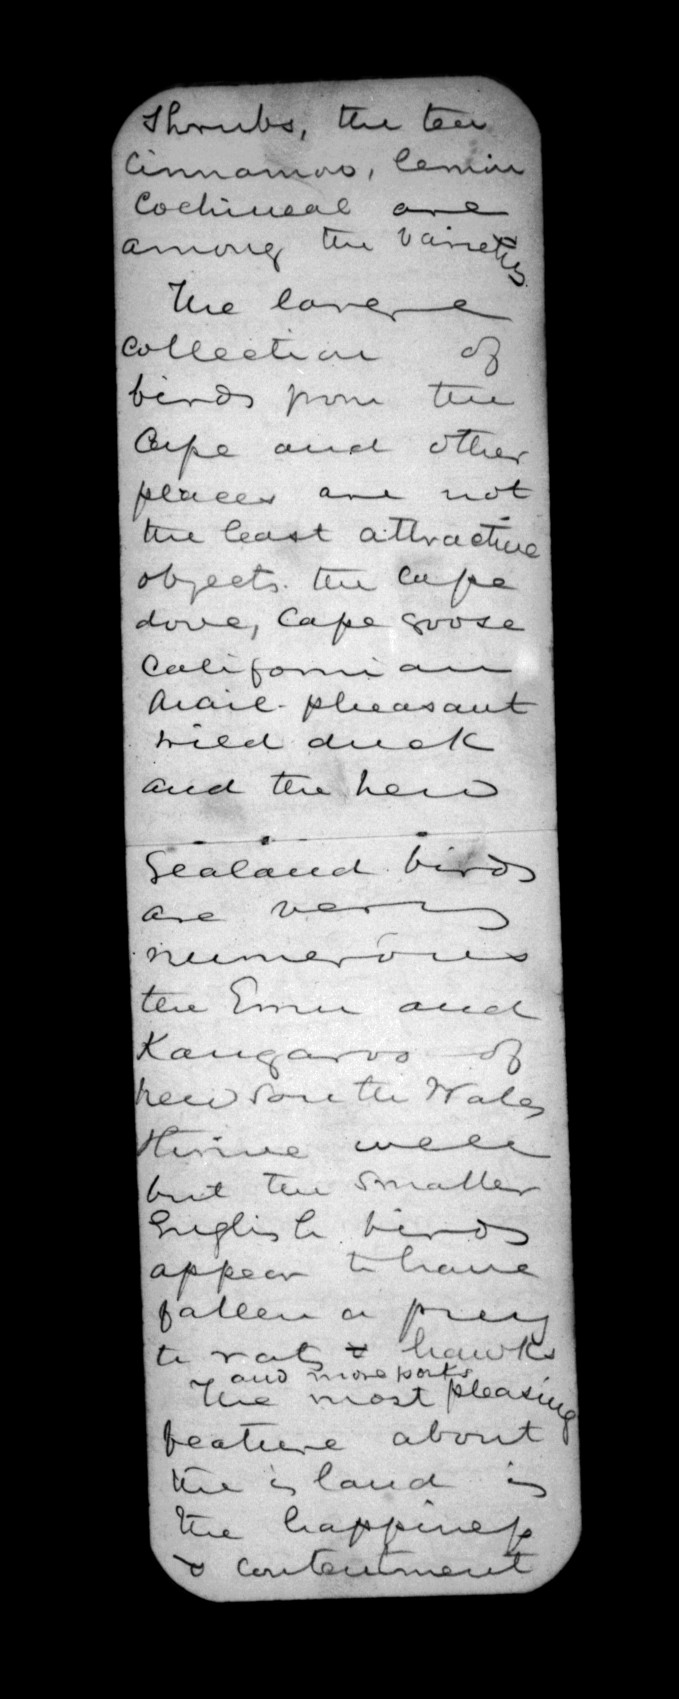 Shrubs, the tea
Cinnamon, lemon
Cochineal are
among the varieties
The large
collection of
birds from the
Cape and other
places are not
the least attractive
objects. the Cape
dove, Cape goose
Californian
quail. pheasant
wild duck
and the New
Zealand birds
are very
numerous
the Emu and
Kangaroo of
New South Wales
thrive well
but the smaller
English birds
appear to have
fallen a prey
to rats & hawks
and more porks
The most pleasing
feature about
the island is
the happiness
& contentment